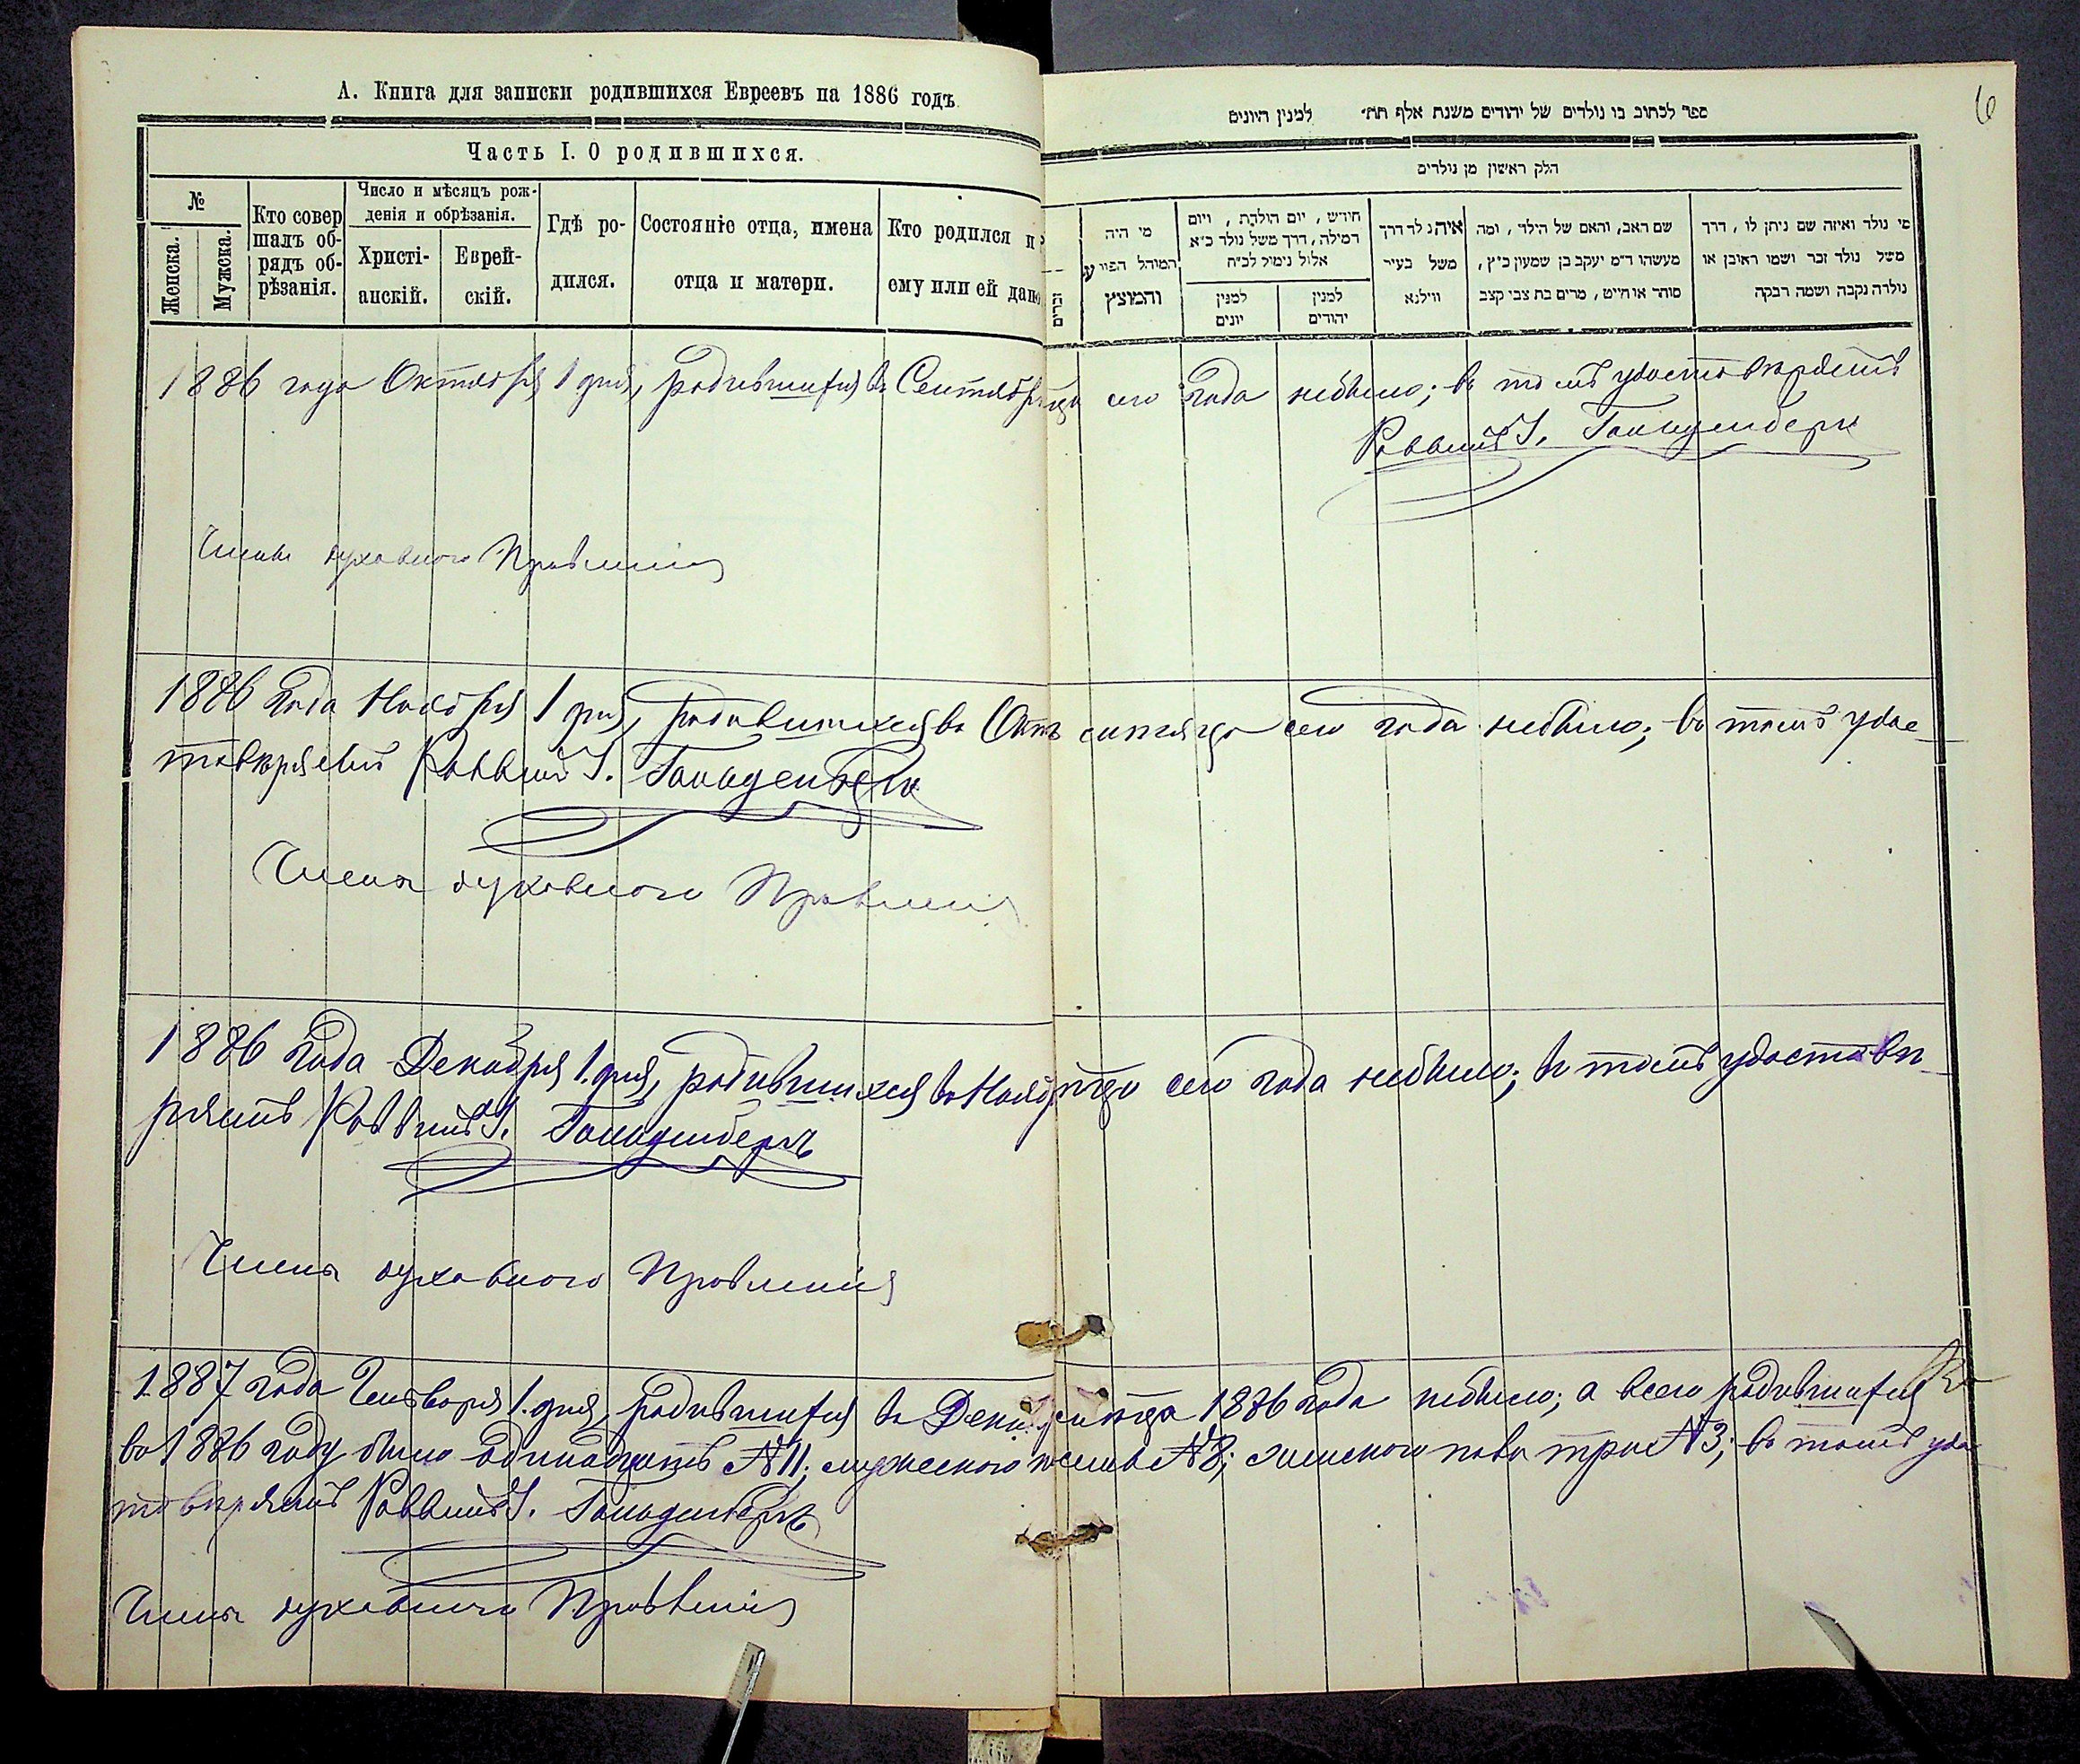 А. Книга для записки родившихся Евреевъ на 1886 годъ
Часть I. О родившихся.
№
Женска.
Мужска.
Кто совершалъ обрядъ обрѣзанія.
Число и мѣсяцъ рожденія и обрѣзанія.
Христіанскій.
Еврейскій.
Гдѣ родился.
Состояніе отца, имена отца и матери.
Кто родился и
ему или ей дано
6
ספר לכתוב בו נולדים של יהודים משנת אלף תת״ למנין היונים
חלק ראשון מן נולדים
זכרים
מי היה
המוהל הפורע
והמוצץ
חודש, יום הולדת, ויום
המילה, דרך משל נולד כ״א
אלול נימול לכ״ח
למנין יונים
למנין יהודים
איה נולד דרך
משל בעיר
ווילנא
שם האב, והאם של הילד, ומה
מעשהו ד״מ יעקב בן שמעון כ״ץ,
סוחר או חייט, מרים בת צבי קצב
מי נולד ואיזה שם ניתן לו, דרך
משל נולד זכר ושמו ראובן או
נולדה נקבה ושמה רבקה
1886 года Октября 1 дня, родившихся въ Сентябрѣ м-цѣ сего года небыло; въ томъ удостовѣряетъ
Раввинъ І. Гольденбергъ
Члены духовного Правленія
1886 года Ноября 1 дня, родившихся въ Окт. мѣсяцѣ сего года небыло; въ томъ удос-
товѣряетъ Раввинъ І. Гольденбергъ
Члены духовного Правленія
1886 года Декабря 1. дня, родившихся въ Нояб. м-цѣ сего года небыло; въ томъ удостовѣ-
ряетъ Раввинъ І. Гольденбергъ
Члены духовного Правленія
1887 года Генваря 1. дня, родившихся въ Дек. мѣсяцѣ 1886 года небыло; а всего родившихся
въ 1886 году было одинадцать №11; мужеского пола №8; женского пола три №3; въ томъ удос-
товѣряетъ Раввинъ І. Гольденбергъ
Члены духовного Правленія